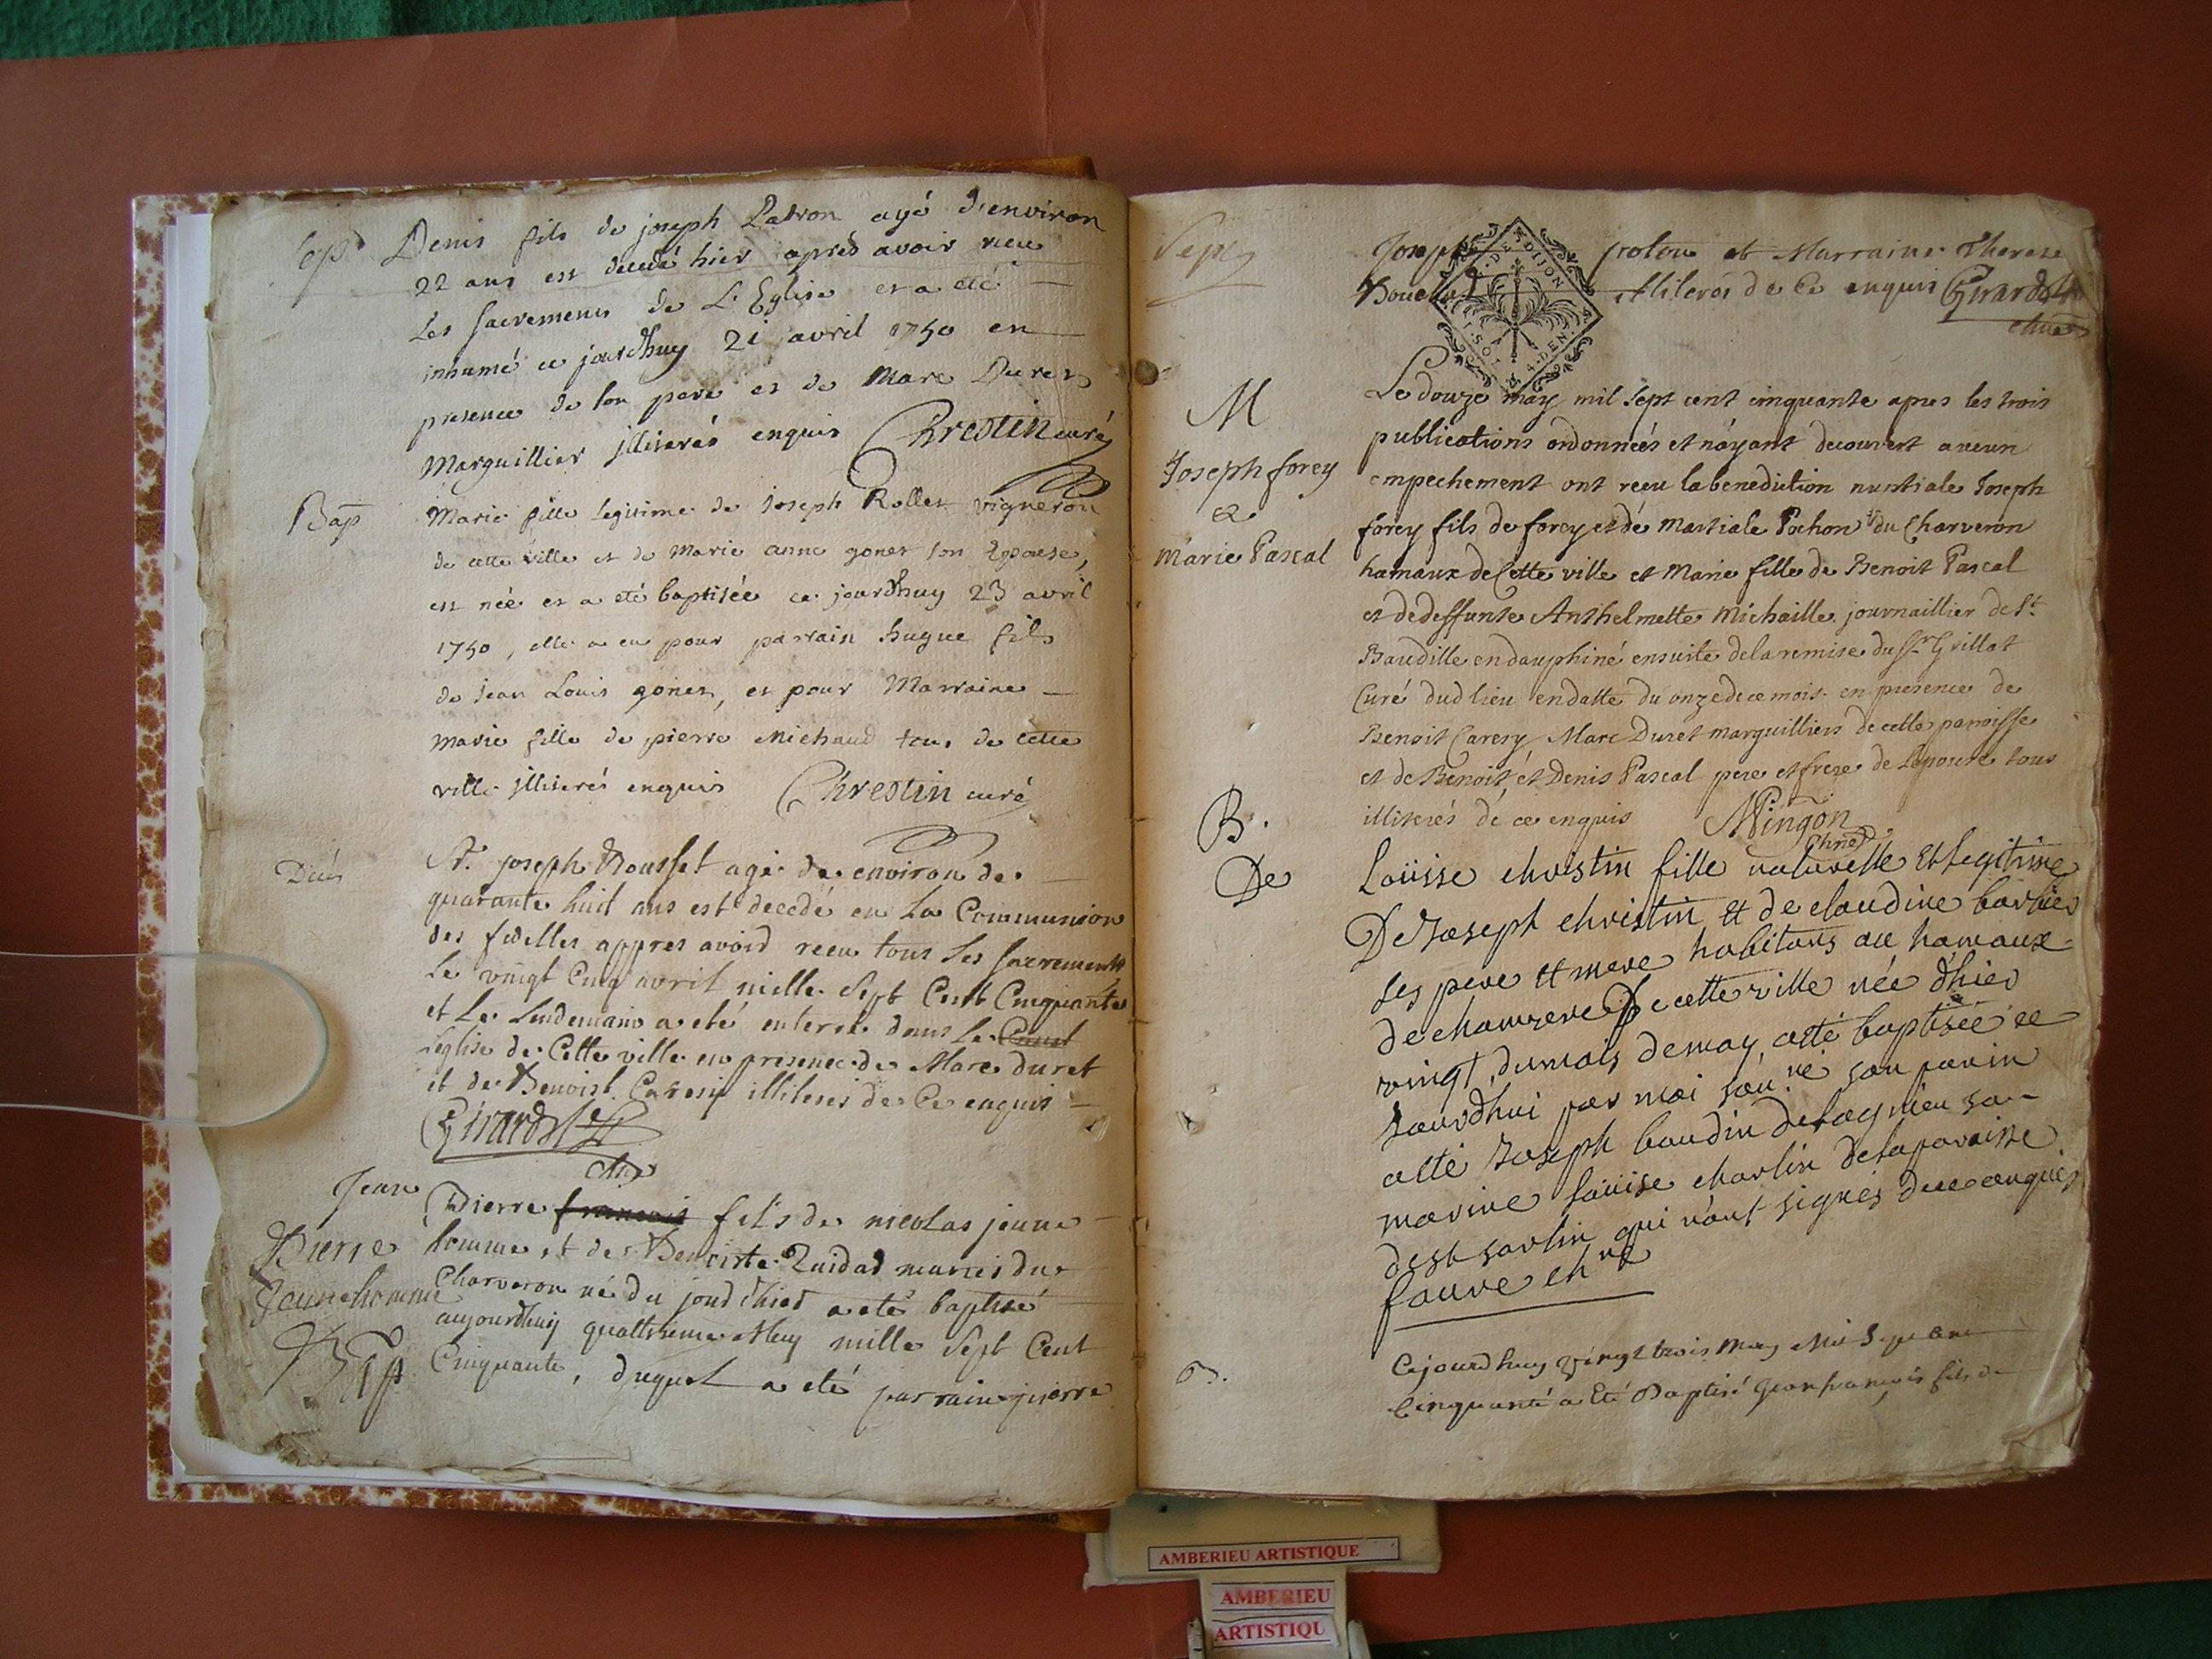 Sep Denis fils de joseph Patron agé d'environ
22 ans est decedé hier aprés avoir recu
les sacrements de L'Eglise et a eté
inhumé ce jourdhuy 21 avril 1750 en
presence de son pere et de Marc Duret
Marguillier jlliterés enquis Chrestin curé
Bap
Marie fille legitime de Joseph Rollet vigneron
de cette ville et de Marie anne gonet son Epouse,
est née et a eté baptisée ce jourdhuy 23 avril
1750, elle a eu pour parrain hugue fils
de jean Louis gonet, et pour Marraine
marie fille de pierre Michaud tous de cette
ville jlliterés enquis Chrestin curé
Décés
Sr. joseph Bousset agé de environ de
quarante huit ans est decedé en la Communion
des fidelles appres avoid receu tous les sacrements
le vingt Cinq avril mille Sept Cent Cinquante
et Le Lendemain a eté enterré dans le
Eglise de Cette ville en presence de Marc duret
et de Benoist Caresy illiterés de Ce enquis
Girardet
chre
Jean
Pierre
Jeunehomme
Bap
Pierre francois fils de nicolas jeune
homme et de Benoiste mariés du
Charveron né du jourd'hier a eté baptisé
aujourdhuy quattrieme May mille Sept Cent
Cinquante, duquel a eté parrain pierre
Sept
Joseph et Marraine Therese
illiterés de Ce enquis Girardet
chre
DIJON
1.SOL 4.DEN.
M
Joseph forey
&
Marie Pascal
Le douze may mil Sept cent cinquante apres les trois
publications ordonnées et n'ayant decouvert aucun
empechement ont receu la benediction nuptiale Joseph
forey fils de forey et de Martiale Pochon du Charveron
hamaux de Cette ville et Marie fille de Benoit Pascal
et de deffunte Anthelmette Michaille journaillier de St
Baudille en dauphiné ensuite de la remise du Sr Grillot
Curé dud lieu en datte du onze de ce mois en presence de
Benoit Caresy Marc Duret marguilliers de cette paroisse
et de Benoit, et Denis Pascal pere et frere de Lepouse tous
illiterés de ce enquis Mingon
Chne
B.
De
Loüisse christin fille naturelle Et legitime
De Joseph christin et de claudine barbier
ses pere et mere habitans au hamaux
de De cette ville née d'hier
vingt du mois de may, a eté baptisée ce
Jourdhui par moi sou.né son parin
a eté Joseph baudin de lagnieu sa
marine Loüise charlin de la paroisse
de st sorlin qui n'ont signés de ce enquis
favre chre
B.
Cejourdhuy vingt trois May Mil Sept Cent
Cinquante a Eté Baptisé Jean francois fils de
AMBERIEU ARTISTIQUE
AMBERIEU
ARTISTIQU